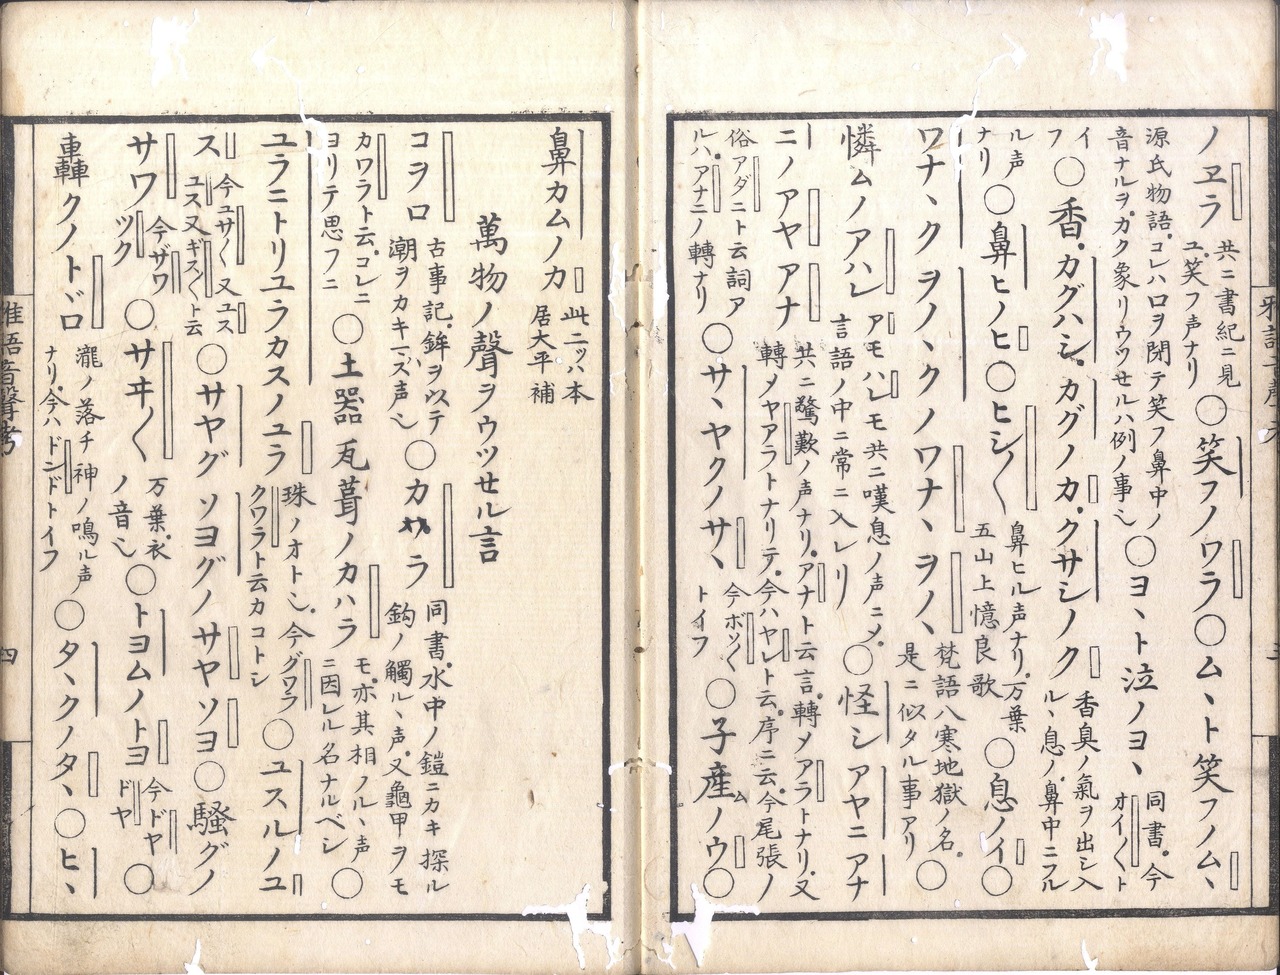 ノヱラ
共ニ書紀ニ見
ユ。笑フ声ナリ
○笑フノワラ○ムヽト笑フノムヽ
源氏物語。コレハ口ヲ閉テ笑フ鼻中ノ
音ナルヲ。カク象リウツセルハ例ノ事也
○ヨヽト泣ノヨヽ
同書。今
オイ〳〵ト
イ
フ
○香。カグハシ。カグノカ。クサシノク
香臭ノ氣ヲ出シ入
ルヽ息ノ。鼻中ニフル
ル声
ナリ
○鼻ヒノヒ○ヒシ〳〵
鼻ヒル声ナリ。万葉
五山上憶良歌
○息ノイ○
ワナヽクヲノヽクノワナヽヲノヽ
梵語八寒地獄ノ名。
是ニ似タル事アリ
○
憐ムノアハレ
アモハレモ共ニ嘆息ノ声ニ〆。
言語ノ中ニ常ニ入レリ
○怪シアヤニアナ
ニノアヤアナ
共ニ驚歎ノ声ナリ。アナト云言。轉〆アラトナリ。又
轉〆ヤアラトナリテ。今ハヤレト云。序ニ云。今尾張ノ
俗アダニト云詞ア
ルハ。アナニノ轉ナリ
○サヽヤクノサヽ
今ボソ〳〵
トイフ
○子産ムノウ○
鼻カムノカ
此二ツハ本
居大平補
萬物ノ聲ヲウツセル言
コヲロ
古事記。鉾ヲ以テ
潮ヲカキニズ声也
○カワラ
同書。水中ノ鎧ニカキ探ル
鈎ノ觸ルヽ声。又龜甲ヲモ
カワラト云。コレニ
ヨリテ思フニ
○土器瓦葺ノカハラ
モ。亦其相ノルヽ声
ニ因レル名ナルベシ
○
ユラニトリユラカスノユラ
珠ノオト也。今グワラ
クワラト云カコトシ
○ユスルノユ
ス
今ユサ〳〵又ユス
ユス又ギス〳〵ト云
○サヤグソヨグノサヤソヨ○騷グノ
サワ
今ザワ
ツク
○サヰ〳〵
万葉。衣
ノ音也
○トヨムノトヨ
今ドヤ
ドヤ
○
車轟クノトヾロ
瀧ノ落チ神ノ鳴ル声
ナリ。今ハドンドトイフ
○タヽクノタヽ○ヒヽ
四